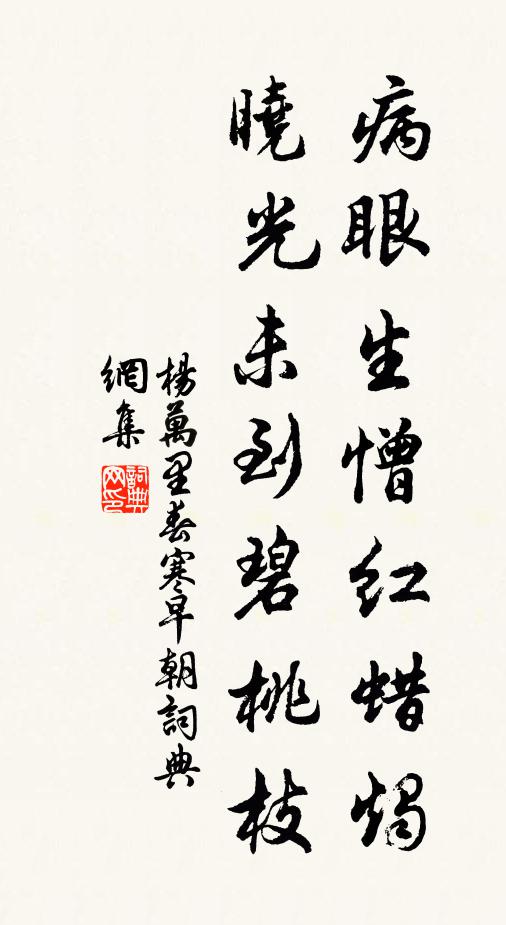 病眼生憎红蜡烛
曉光未到碧桃枝
楊萬里春寒早朝詞典
網集
詞典
网印